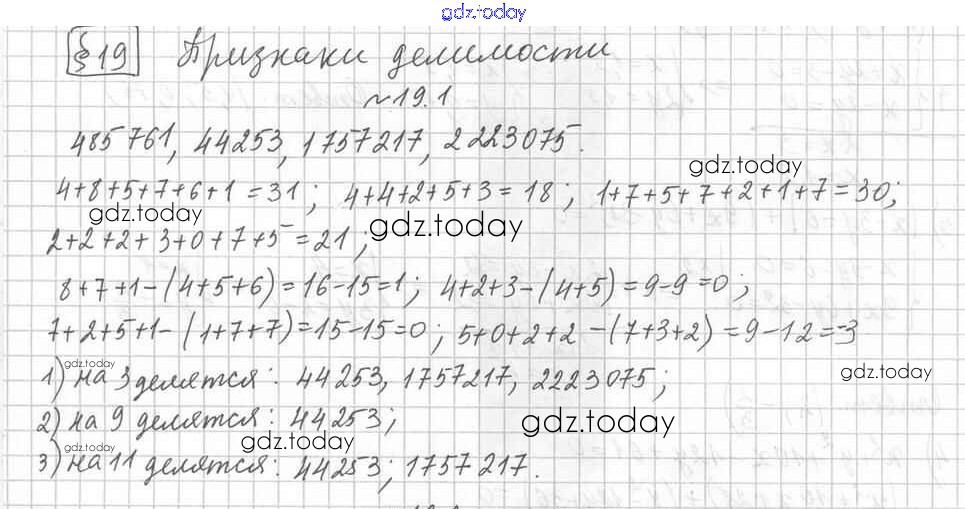 gdz.today
§19 Признаки делимости
№19.1
485761, 44253, 1757217, 2223075.
gdz.today
4+8+5+7+6+1=31; 4+4+2+5+3=18; 1+7+5+7+2+1+7=30;
gdz.today gdz.today
2+2+2+3+0+7+5=21;
8+7+1-(4+5+6)=16-15=1; 4+2+3-(4+5)=9-9=0;
7+2+5+1-(1+7+7)=15-15=0; 5+0+2+2-(7+3+2)=9-12=-3
gdz.today gdz.today
1) на 3 делятся: 44253, 1757217, 2223075;
2) на 9 делятся: 44253;
gdz.today gdz.today gdz.today
3) на 11 делятся: 44253; 1757217.